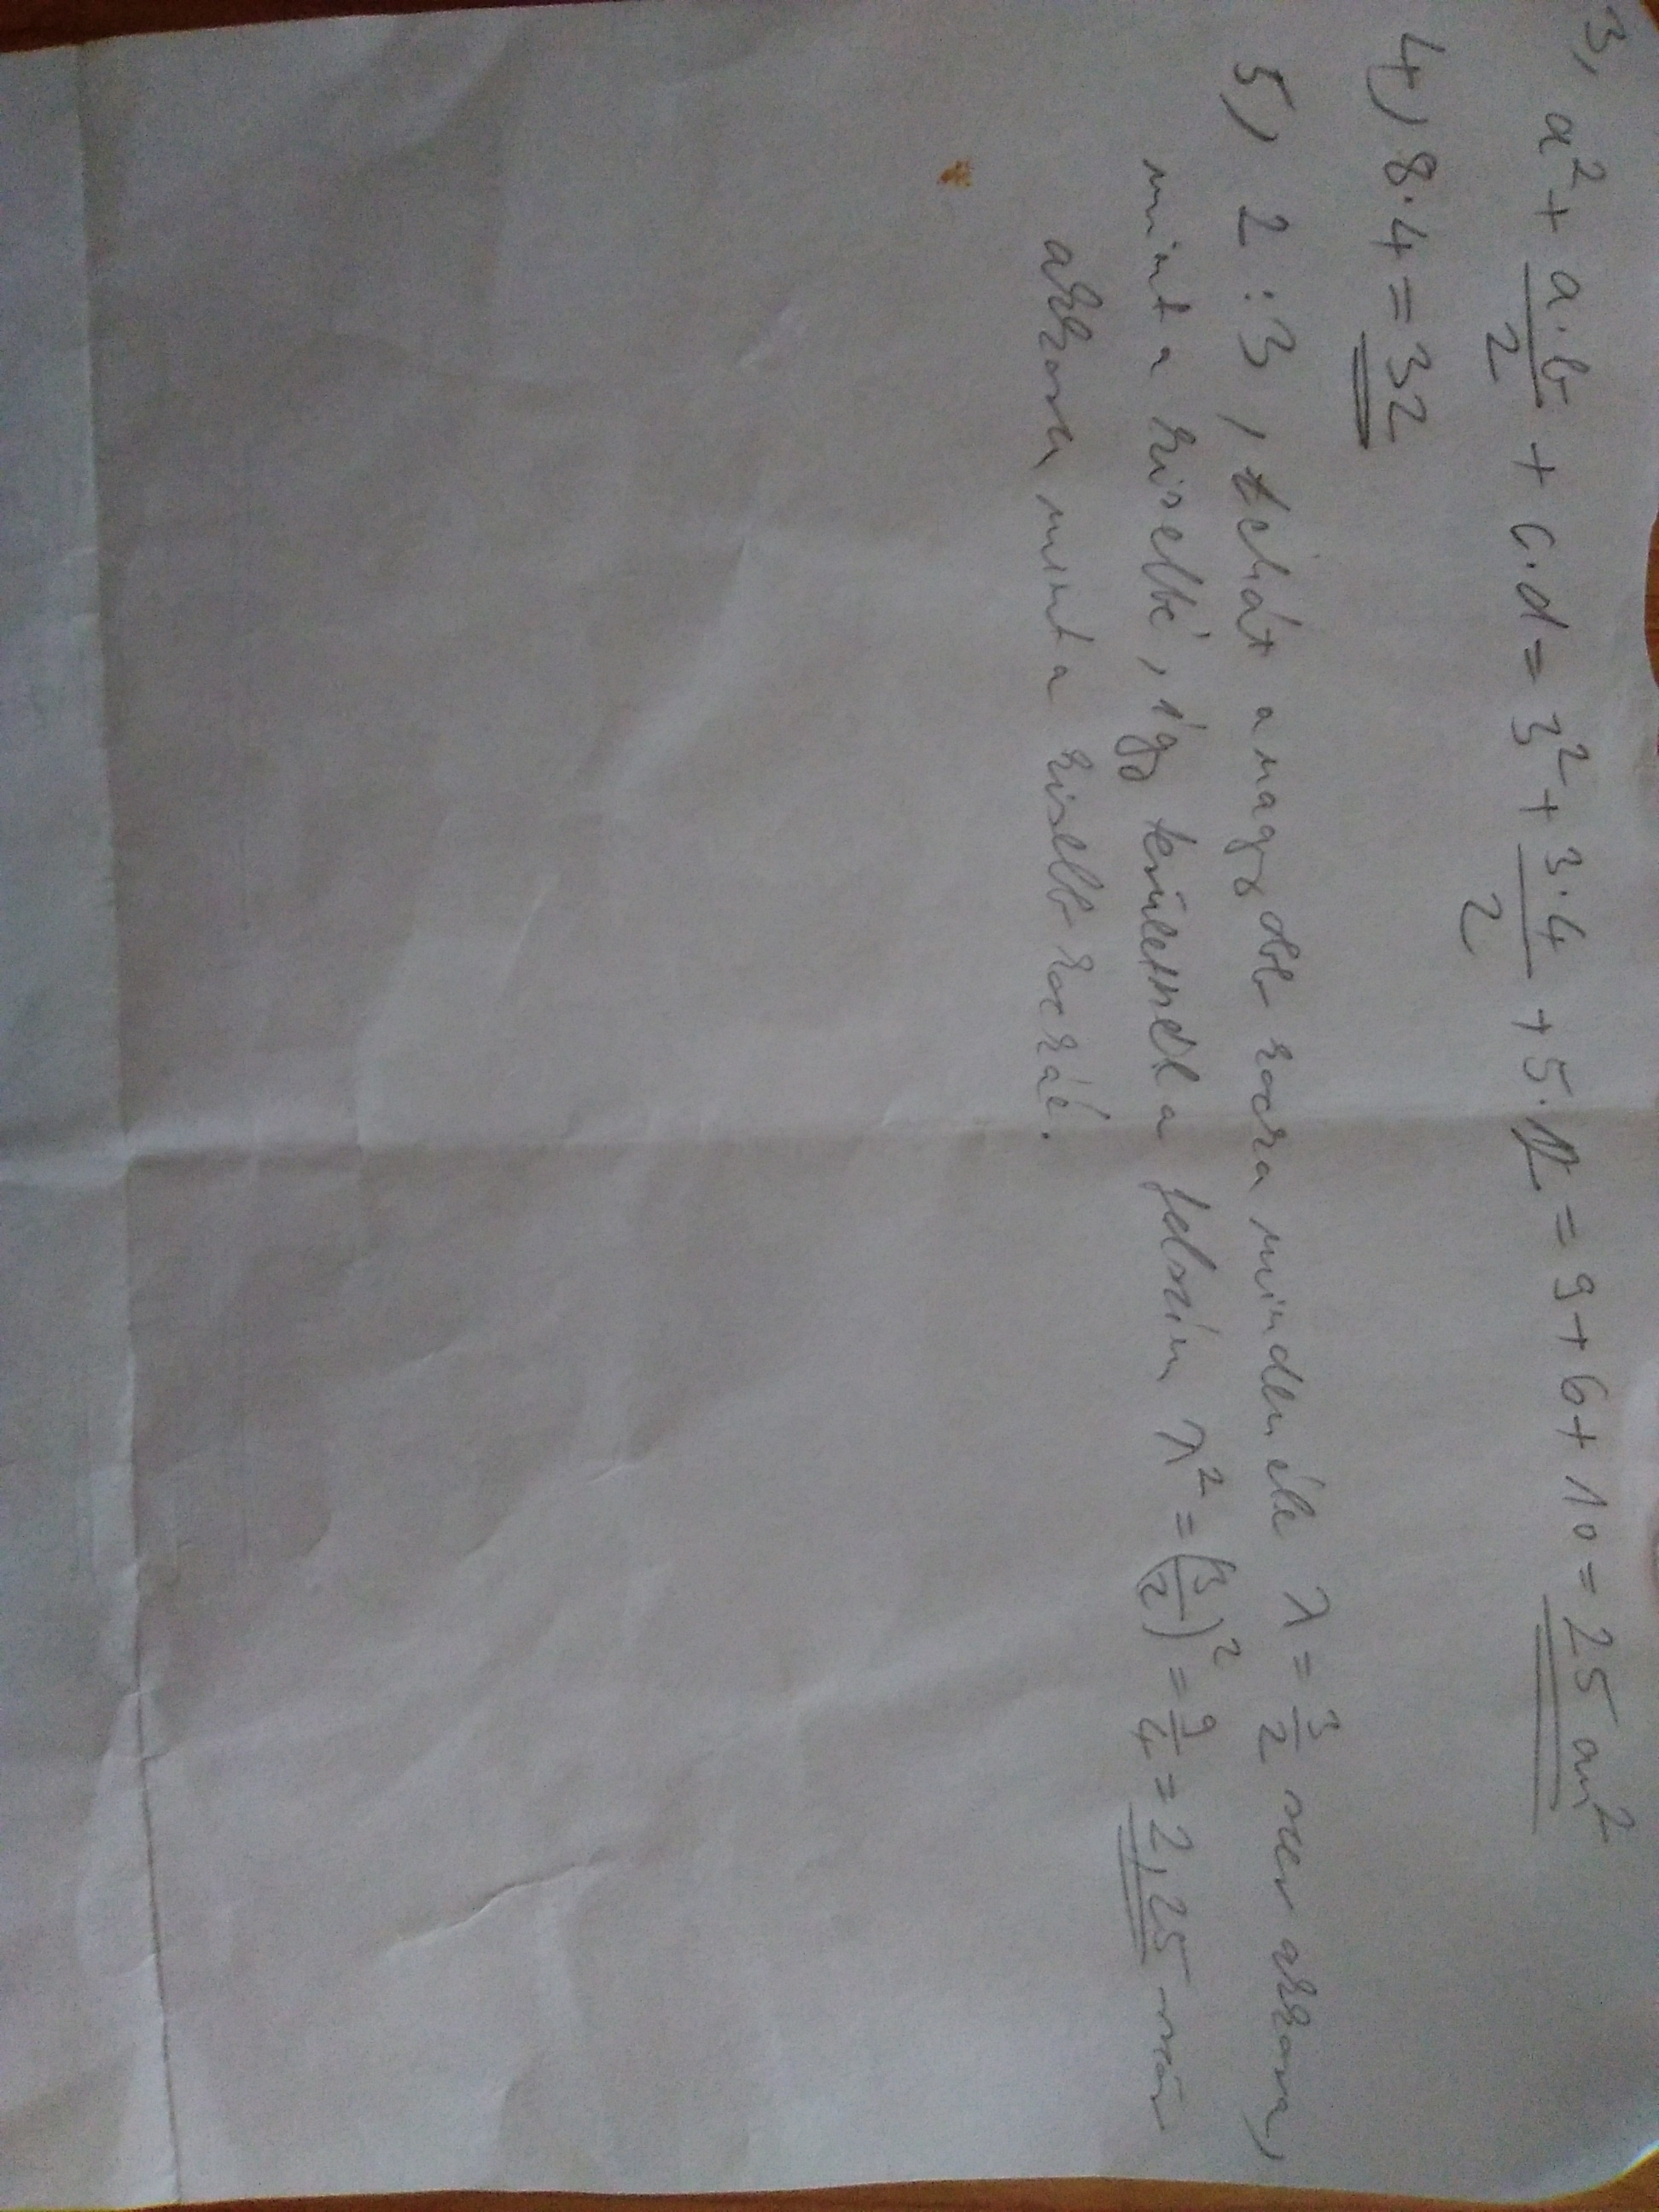 3, a² + a·b/2 + c·d = 3² + 3·4/2 + 5·2 = 9 + 6 + 10 = 25 cm²
4, 8·4 = 32
5, 2:3, tehát a nagyobb kocka minden éle λ = 3/2 szer akkora,
mint a kisebbé, így területnek a felszín λ² = (3/2)² = 9/4 = 2,25 ször
akkora mint a kisebb kockáé.